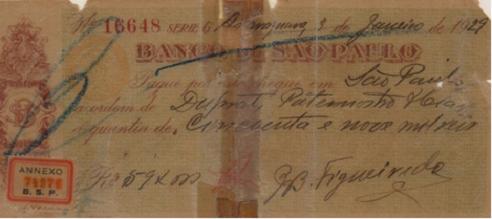 Nº 16648 SERIE 6 3 de Janeiro de 1929
BANCO DE SÃO PAULO
Pague por este cheque em São Paulo
a ordem de Duprat,
a quantia de Cincoenta e nove mil reis
ANNEXO
74376
B. S. P.
Rs 59$000
J.B. Figueiredo